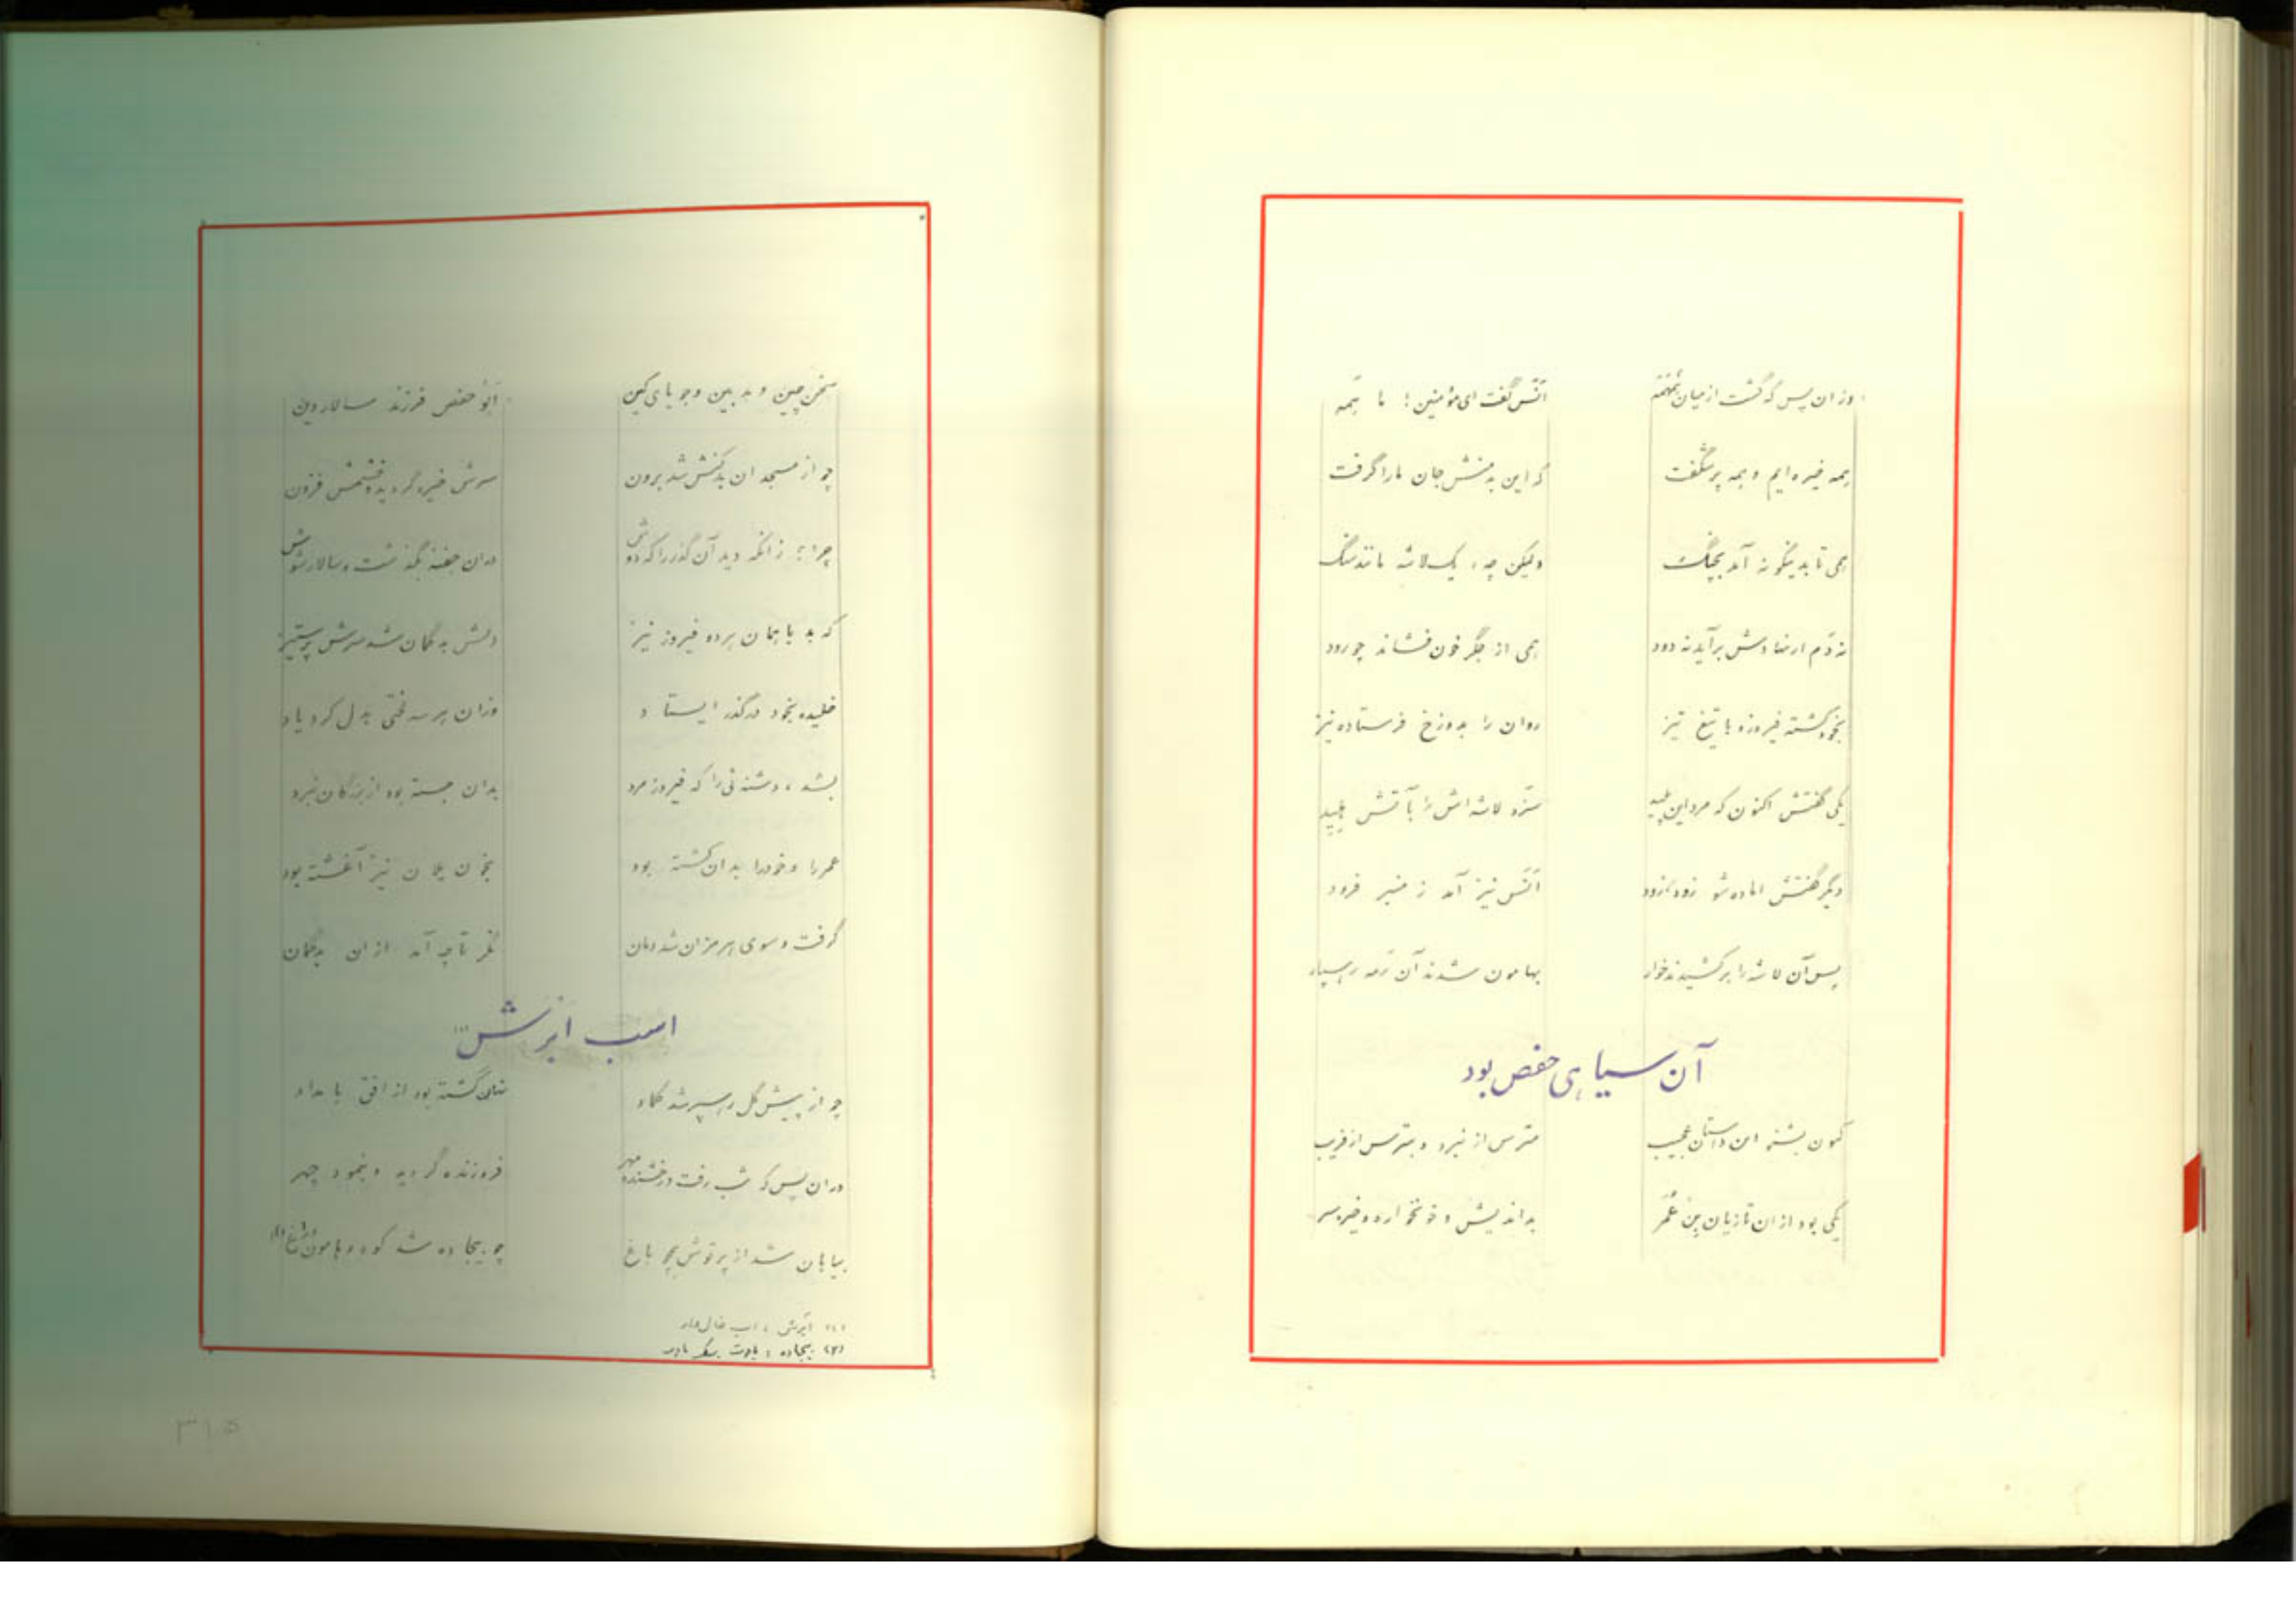 وزان پس که گشت از میان همهمه
انس گفت ای مؤمنین! ما همه
همه خیره ایم و همه پر شگفت
که این بد منش جان ما را گرفت
همی تا بدینگونه آمد بچنگ
ولیکن چه، یک لاشه مانند سنگ
نه دم از نهادش برآید نه دود
همی از جگر خون فشاند چو رود
بخود کشته فیروز و با تیغ تیز
روان را بدوزخ فرستاده نیز
یکی گفتش اکنون که مرد این پلید
سزد لاشه اش را بآتش
دگر گفتش اماده شو زود زود
انس نیز آمد ز منبر فرود
پس آن لاشه را برکشیدند خوار
بهامون شدند آن رمه رهسپار
آن سیاهی حفص بود
کنون بشنو این داستان عجیب
مترس از نبرد و بترس از فریب
یکی بود از ان تازیان بن عمر
بداندیش و خونخواره و خیره سر
سخن چین و بد بین و جویای کین
ابو حفص فرزند سالار دین
چو از مسجد ان بدکنش شد برون
سرش خیره گردید و خشمش فزون
چرا؟ زانکه دید آن گذر را که دوش
دران خفته بگذشت و سالار شوش
که بد با همان برده فیروز نیز
دلش بد گمان شد سرش پر ستیز
خلیده بخود درگذر ایستاد
وزان هر سه لختی بدل کرد یاد
بشد، دشنه ئی را که فیروز مرد
بدان جسته بود از بزرگان نبرد
عمر را و خود را بدان کشته بود
بخون یلان نیز آغشته بود
گرفت و سوی هرمزان شد دمان
نگر تا چه آمد ازان بدگمان
اسب ابرش (۱)
چو از پیش گل رهسپر شد
نمایان گشته بود از افق بامداد
دران پس که شب رفت و رخشنده مهر
فروزنده گردید و بنمود چهر
بیابان شد از پرتوش همچو باغ
چو بیجاده شد کوه و هامون و راغ (۲)
(۱) ابرش: اسب خال دار
(۲) بیجاده: یاقوت
۳۱۵